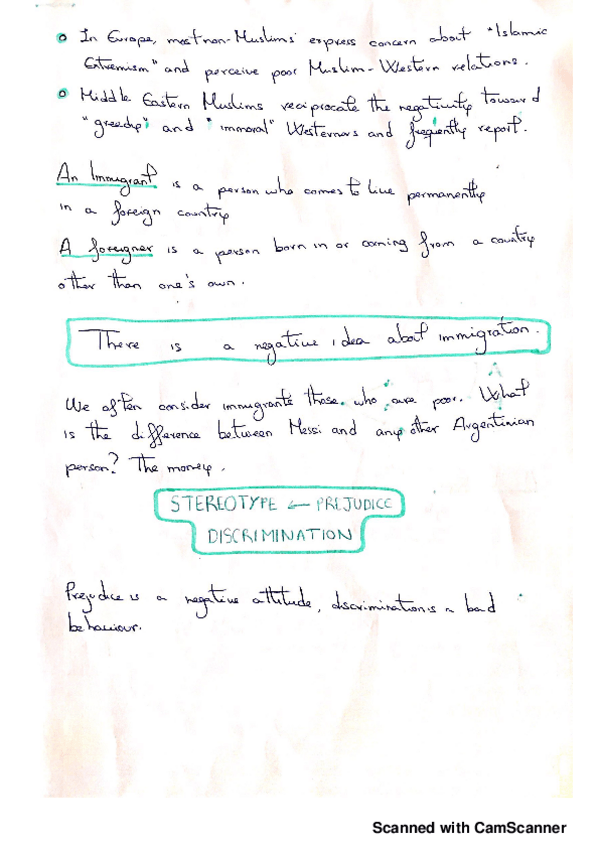 In Europe, most non-Muslims express concern about "Islamic
Extremism" and perceive poor Muslim-Western relations.
Middle Eastern Muslims reciprocate the negativity toward
"greedy" and "immoral" Westerners and frequently report.
An Immigrant is a person who comes to live permanently
in a foreign country
A foreigner is a person born in or coming from a country
other than one's own.
There is a negative idea about immigration.
We often consider immigrants those who are poor. What
is the difference between Messi and any other Argentinian
person? The money.
STEREOTYPE ← PREJUDICE
DISCRIMINATION
Prejudice is a negative attitude, discrimination is a bad
behaviour.
Scanned with CamScanner